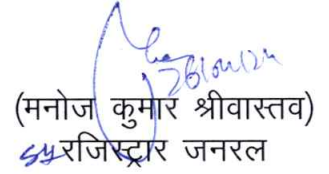 26/04/24
(मनोज कुमार श्रीवास्तव)
रजिस्ट्रार जनरल